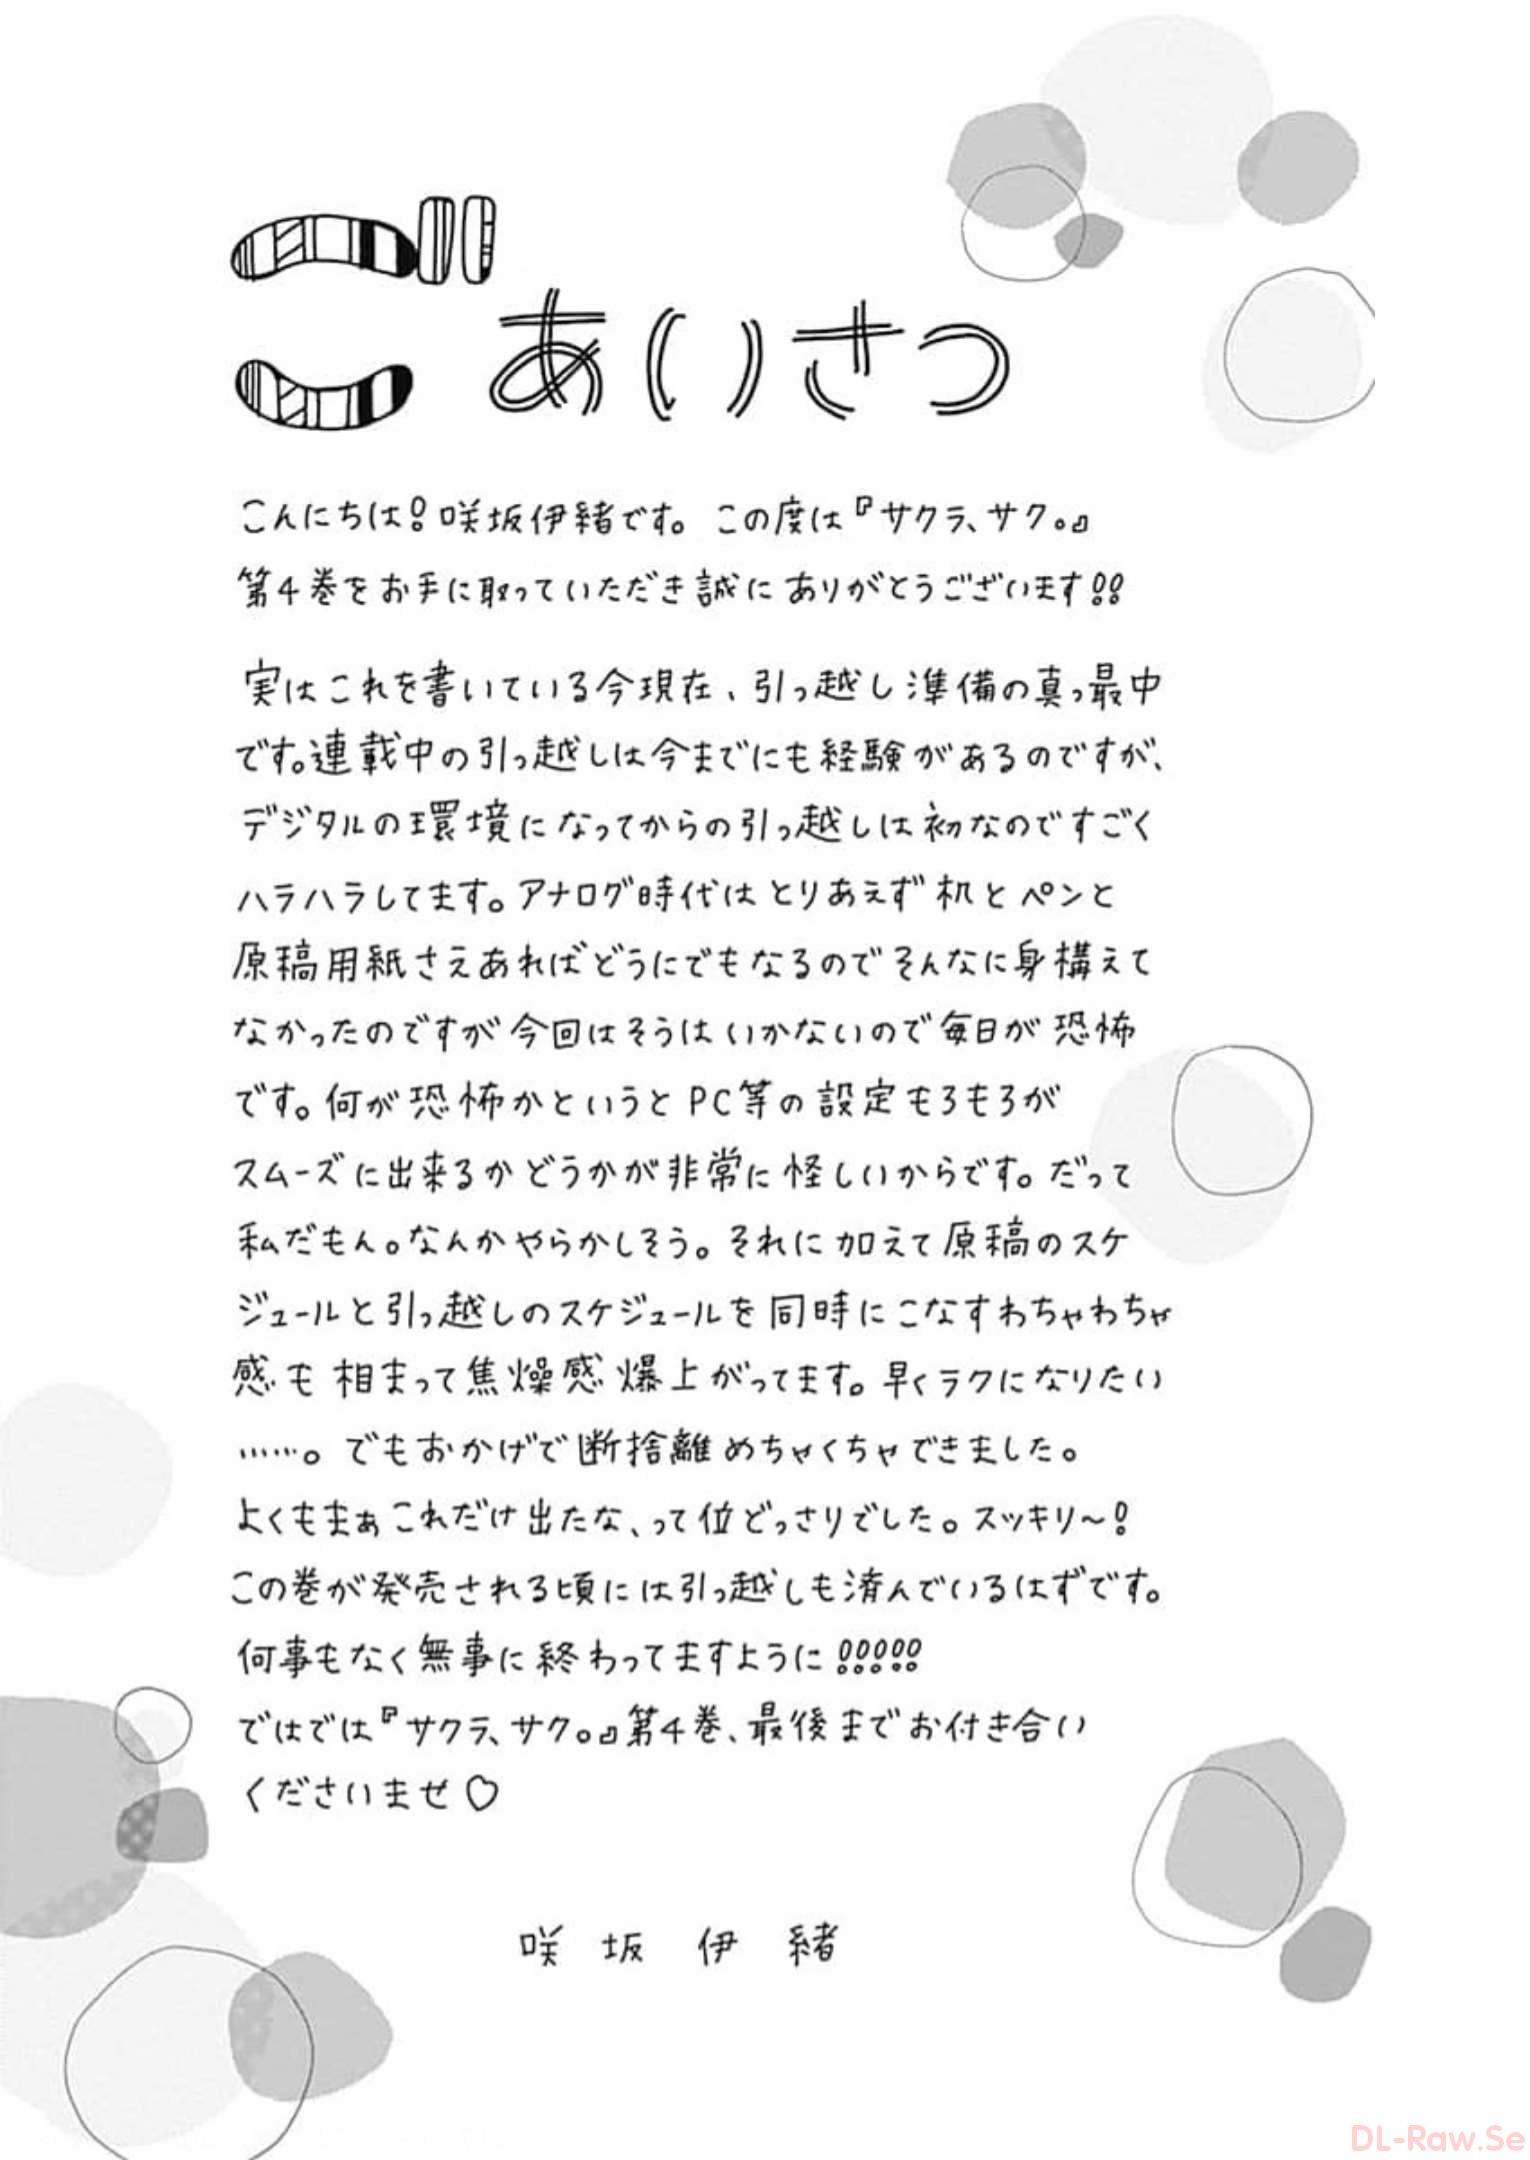 ごあいさつ
こんにちは！咲坂伊緒です。この度は『サクラ、サク。』
第4巻をお手に取っていただき誠にありがとうございます!!
実はこれを書いている今現在、引っ越し準備の真っ最中
です。連載中の引っ越しは今までにも経験があるのですが、
デジタルの環境になってからの引っ越しは初なのですごく
ハラハラしてます。アナログ時代はとりあえず机とペンと
原稿用紙さえあればどうにでもなるのでそんなに身構えて
なかったのですが今回はそうはいかないので毎日が恐怖
です。何が恐怖かというとPC等の設定もろもろが
スムーズに出来るかどうかが非常に怪しいからです。だって
私だもん。なんかやらかしそう。それに加えて原稿のスケ
ジュールと引っ越しのスケジュールを同時にこなすわちゃわちゃ
感も相まって焦燥感爆上がってます。早くラクになりたい
……。でもおかげで断捨離めちゃくちゃできました。
よくもまぁこれだけ出たな、って位どっさりでした。スッキリ〜！
この巻が発売される頃には引っ越しも済んでいるはずです。
何事もなく無事に終わってますように!!!!!
ではでは『サクラ、サク。』第4巻、最後までお付き合い
くださいませ♡
咲坂伊緒
DL-Raw.Se